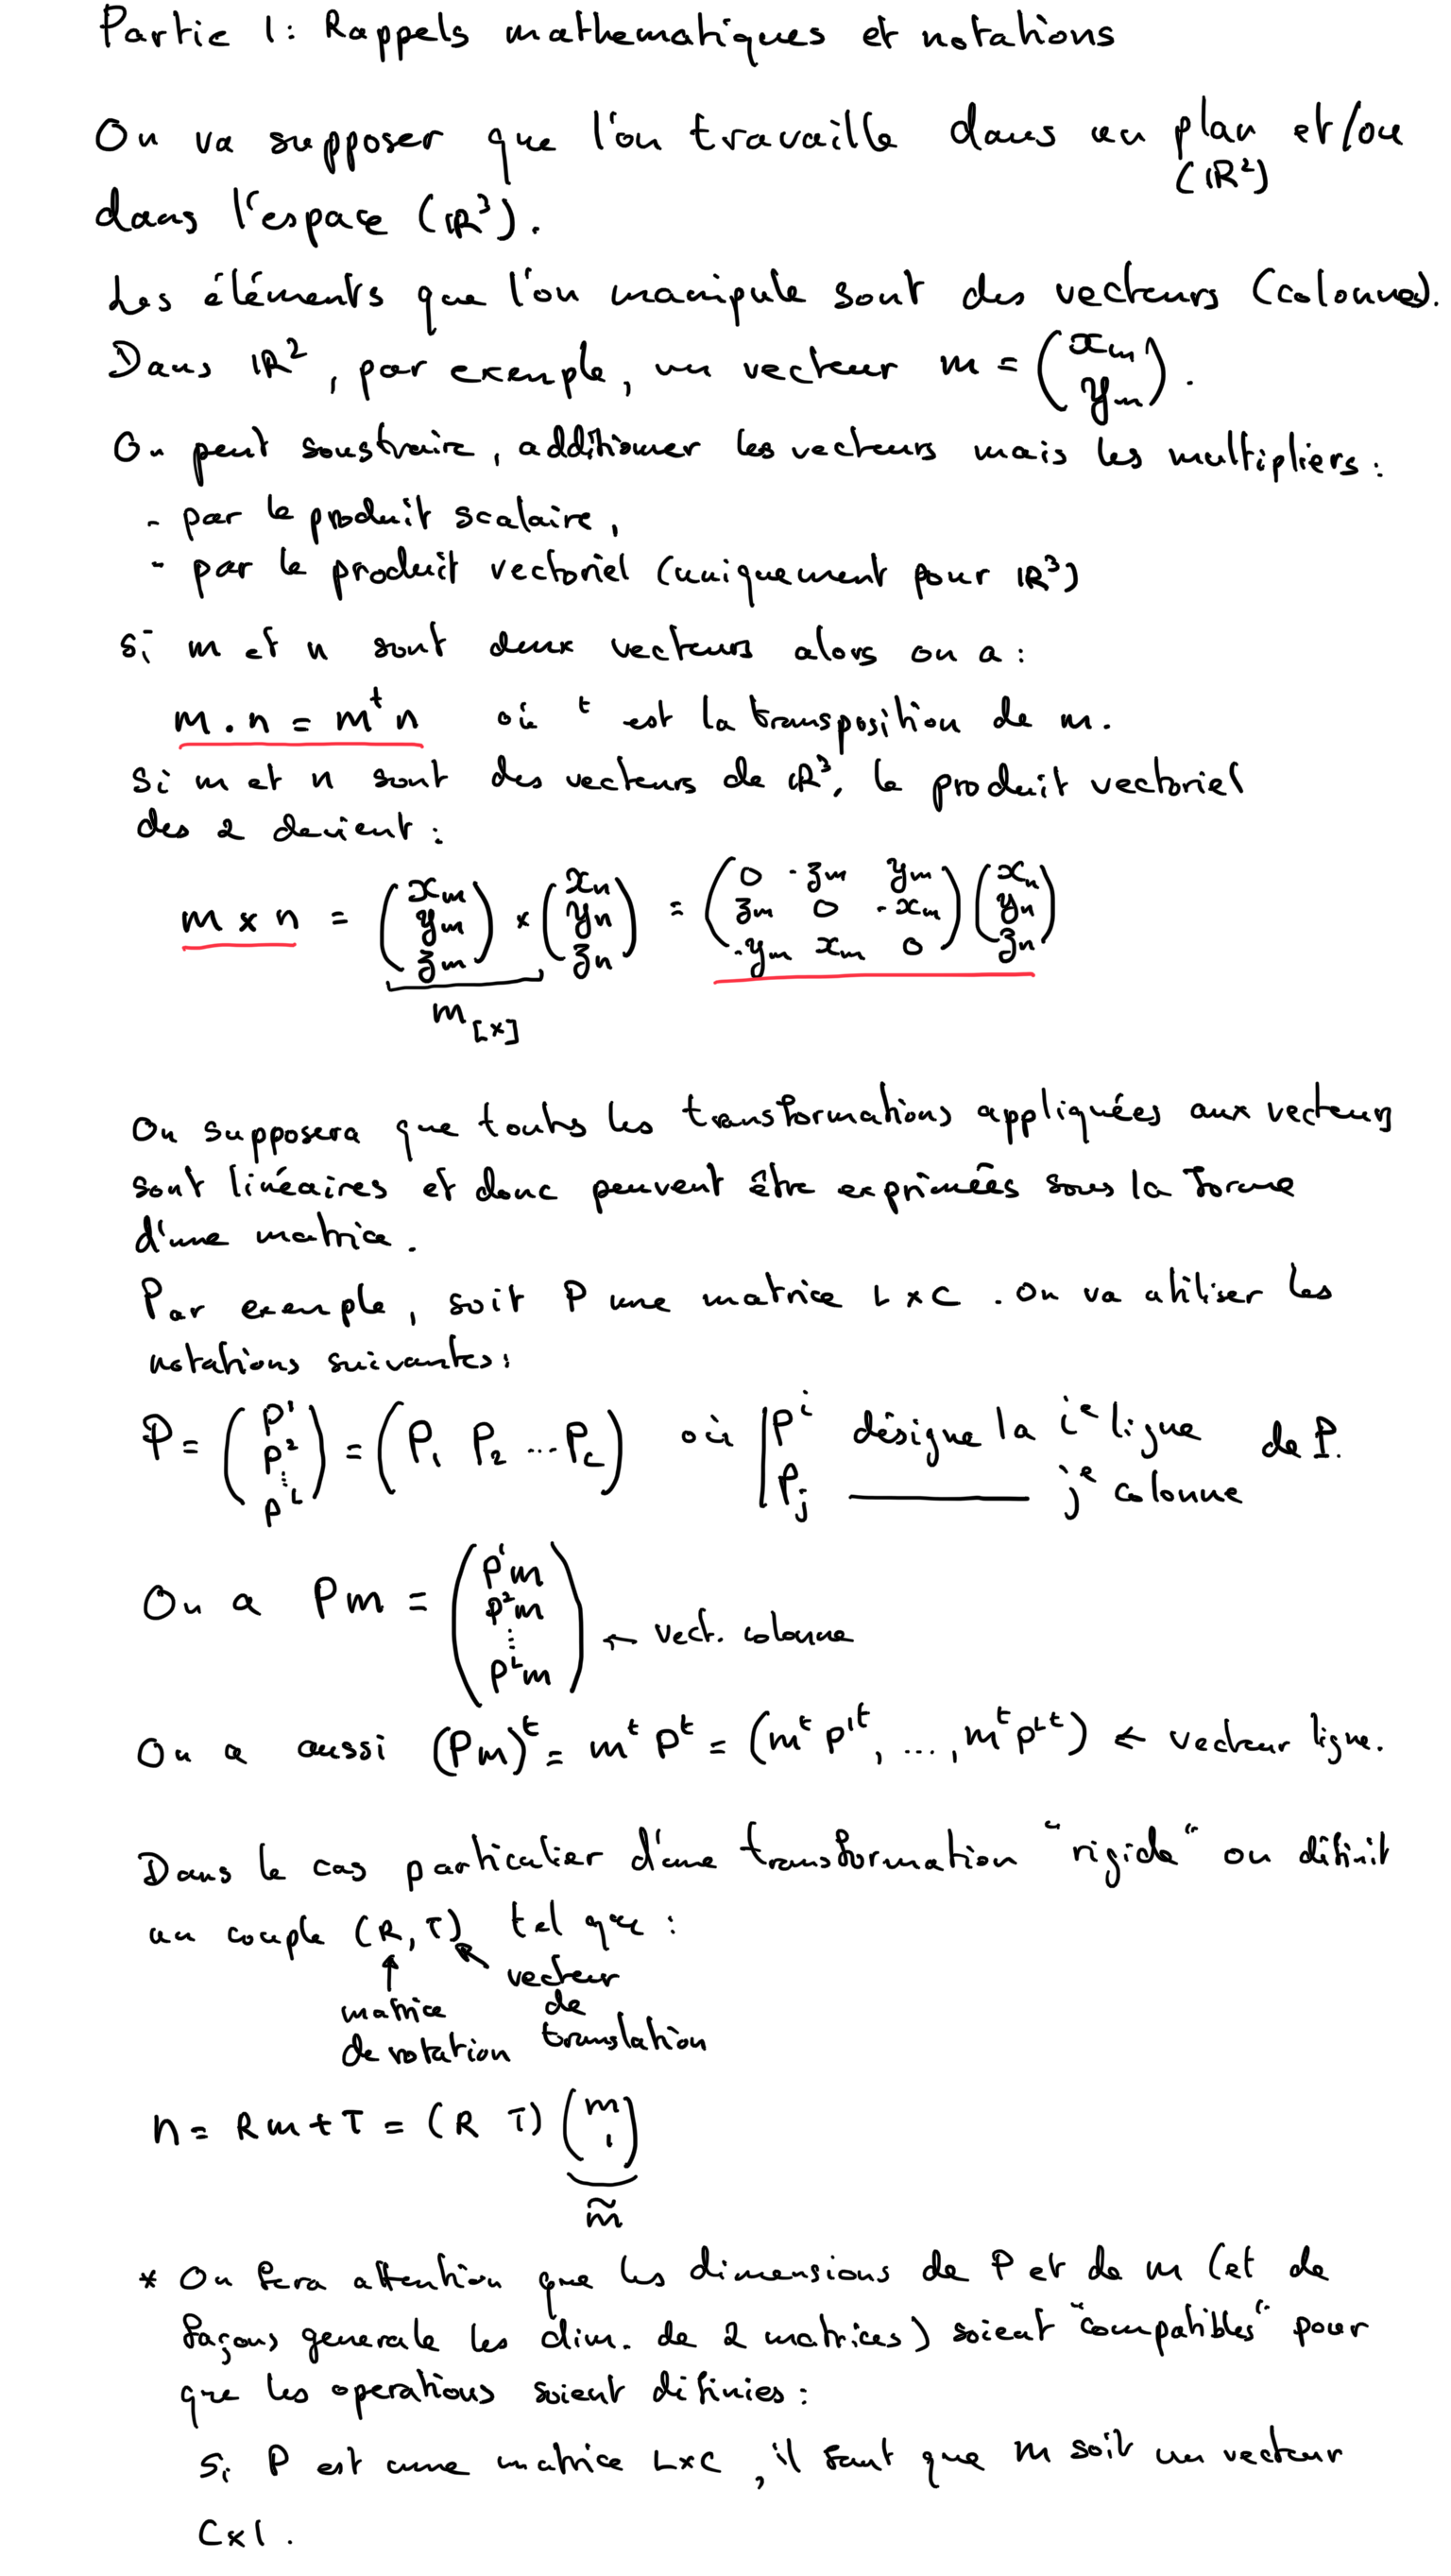 Partie 1: Rappels mathematiques et notations
On va supposer que l'on travaille dans un plan et/ou
(ℝ²)
dans l'espace (ℝ³).
Les éléments que l'on manipule sont des vecteurs (colonnes).
Dans ℝ², par exemple, un vecteur m = (x_m y_m).
On peut soustraire, additionner les vecteurs mais les multipliers:
- par le produit scalaire,
- par le produit vectoriel (uniquement pour ℝ³)
Si m et n sont deux vecteurs alors on a:
m . n = m^t n où ^t est la transposition de m.
Si m et n sont des vecteurs de ℝ³, le produit vectoriel
des 2 devient:
m × n = (x_m y_m z_m) × (x_n y_n z_n) = (0 -z_m y_m z_m 0 -x_m -y_m x_m 0) (x_n y_n z_n)
m_[×]
On supposera que toutes les transformations appliquées aux vecteurs
sont linéaires et donc peuvent être exprimées sous la forme
d'une matrice.
Par exemple, soit P une matrice L×C. On va utiliser les
notations suivantes:
P = (P¹ P² ⋮ P^L) = (P₁ P₂ ... P_C) où | P^i désigne la i^e ligne de P.
P_j ——— j^e colonne
On a Pm = (P¹m P²m ⋮ P^L m) ← vect. colonne
On a aussi (Pm)^t = m^t P^t = (m^t P^1t, ..., m^t P^Lt) ← vecteur ligne.
Dans le cas particulier d'une transformation "rigide" on définit
un couple (R, T) tel que:
↑ matrice de rotation
↖ vecteur de translation
n = Rm + T = (R T) (m 1)
m̃
* On fera attention que les dimensions de P et de m (et de
façons generale les dim. de 2 matrices) soient "compatibles" pour
que les operations soient définies:
Si P est une matrice L×C, il faut que m soit un vecteur
C×1.